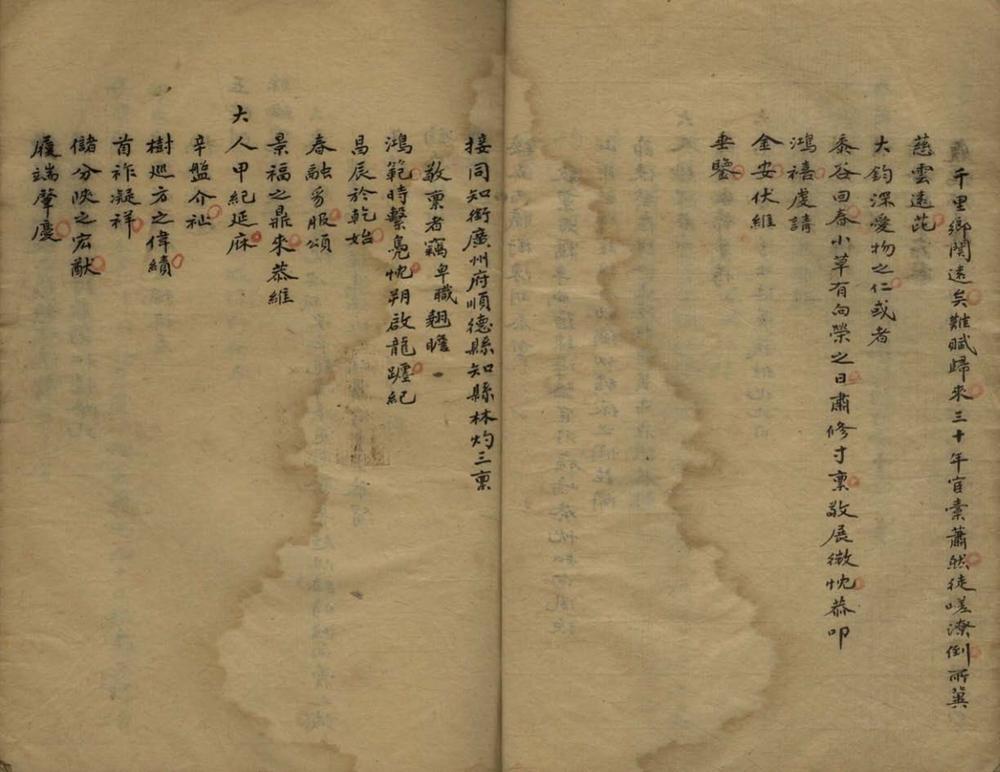 千里鄉關遠矣難賦歸來三十年宦橐蕭然徒嗟潦倒所冀
慈雲遠芘
大鈞深愛物之仁或者
黍谷回春小草有向榮之日肅修寸稟敬展微忱恭叩
鴻禧虔請
金安伏維
垂鑒
接同知銜廣州府順德縣知縣林灼三稟
敬稟者竊卑職翹瞻
鴻範時繫鳧忱朔啟龍躔紀
昌辰於乾始
春融象服頌
景福之鼎來恭維
大人甲紀延庥
辛盤介祉
樹巡方之偉績
首祚凝祥
儲分陝之宏猷
履端肇慶